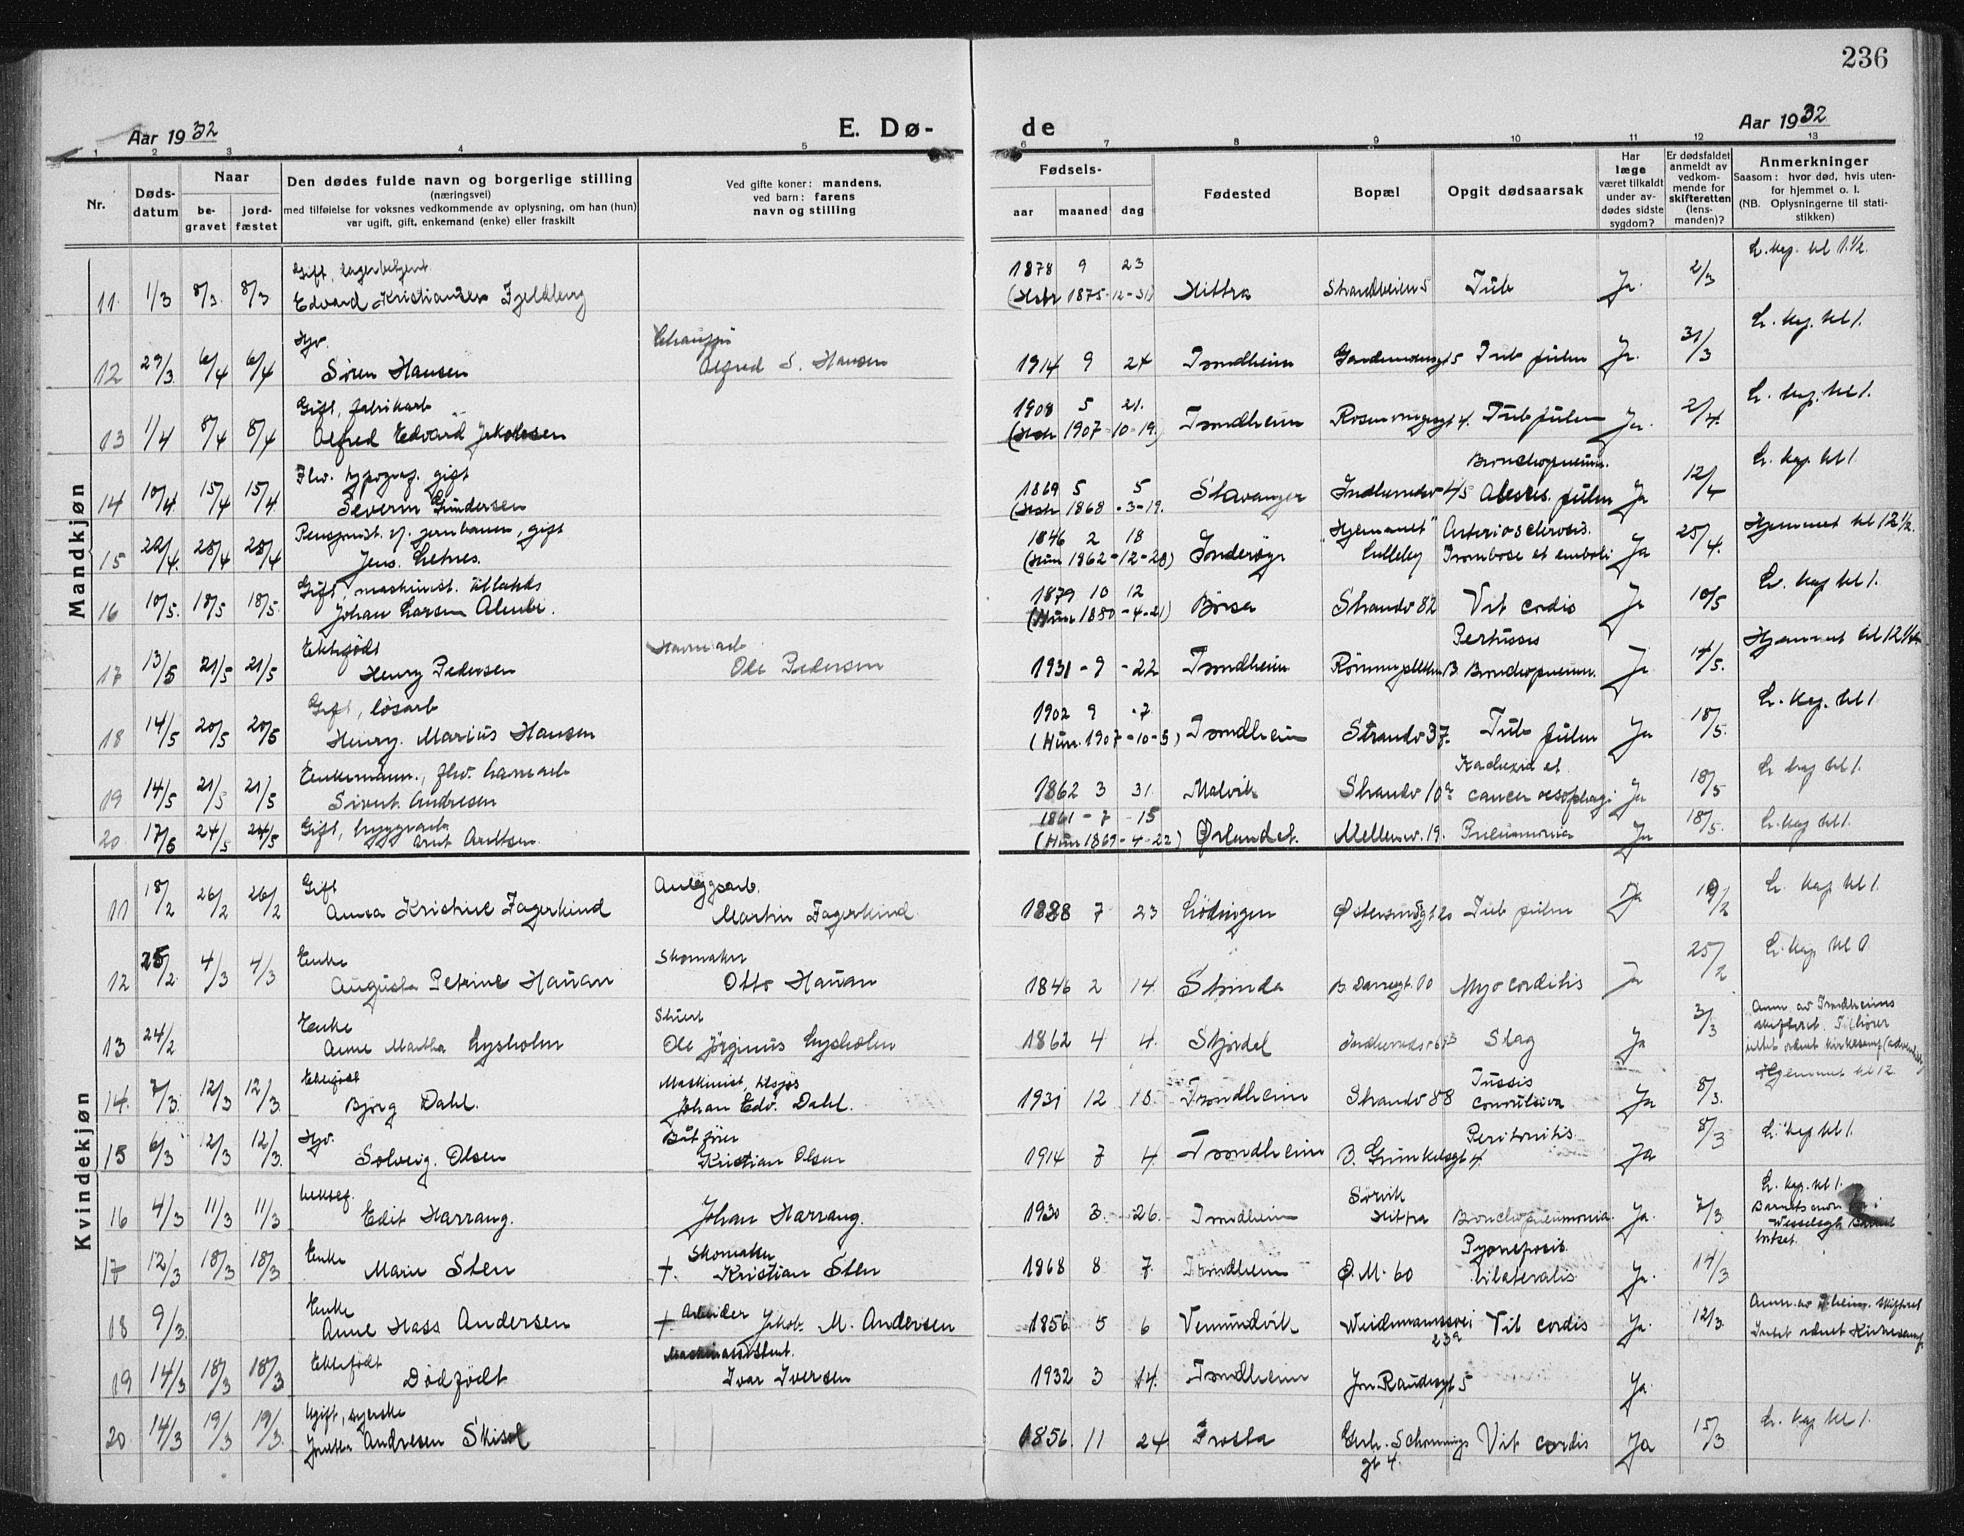 236
Aar 1932
E. Dø-
de
Aar 1932
1 2 3 4 5 6 7 8 9 10 11 12 13
Nr.
Døds-
datum
Naar
be-
gravet
jord-
fæstet
Den dødes fulde navn og borgerlige stilling
(næringsvei)
med tilføielse for voksnes vedkommende av oplysning, om han (hun)
var ugift, gift, enkemand (enke) eller fraskilt
Ved gifte koner: mandens,
ved barn: farens
navn og stilling
Fødsels-
aar
maaned
dag
Fødested
Bopæl
Opgit dødsaarsak
Har
læge
været tilkaldt
under av-
dødes sidste
sygdom?
Er dødsfaldet
anmeldt av
vedkom-
mende for
skifteretten
(lens-
manden)?
Anmerkninger
Saasom: hvor død, hvis uten-
for hjemmet o. l.
(NB. Oplysningerne til stati-
stikken)
Mandkjøn
Gift, lagerbetjent 1878 9 23 L. kap. kl 1 1/2.
11. 1/3 8/3. 8/3 Edvard Kristiansen Fjeldberg (Hstr 1875-12-31) Hittra Strandveien 5 Tub Ja. 2/3
Ugv. L. kap. kl 1.
12 29/3. 6/4 6/4 Søren Hansen Alfred S. Hansen 1914 9 24 Trondheim Tub pulm Ja. 31/3
Gift, fabrikarb 1908 5 21. L. kap. kl 1.
13 1/4 8/4 8/4 Alfred Edvard Jakobsen (Hstr 1907-10-19.) Trondheim Tub pulm Ja. 2/4.
Fhv. typograf. gift Bronchopneum. L. kap kl 1.
14 10/4 15/4 15/4 Severin Gundersen 1869 5 5 (Hstr 1868-3-19. Stavanger 45 pulm Ja 12/4
Pensjonist v. jernbanen, gift 1846 2 18 "Hjemmet" Arteriosclerosis. Hjemmet kl 12 1/2.
15 22/4. 28/4 28/4 Jens (Hun 1862-12-28) Inderøy Trombose et emboli Ja 25/4.
Gift, maskinist 1879 10 12 L. kap kl 1.
16 10/5. 18/5 18/5. Johan Larsen (Hun 1880-4-21) Børsa Strandv 82 Vit cordis Ja 10/5
Ektefødt Havnearb. Pertussis Hjemmet kl 12 1/2
17 13/5 21/5 21/5 Henry Pedersen Ole Pedersen 1931-9-22 Trondheim Bronchopneum. Ja 14/5.
Gift, løsarb 1902 9 7 L. kap. kl 1.
18 14/5 20/5 20/5 Henry. Marius Hansen (Hun. 1907-10-5) Trondheim Strandv 37. Tub pulm Ja 18/5.
Enkemann., fhv. havnearb L kap kl 1.
19 14/5 21/5 21/5 Sivert Andresen 1862 3 31. Malvik Strandv 10a cancer oesophagi Ja 18/5
Gift, byggearb 1861-7-15
20. 17/5 24/5 24/5 Arnt Arntsen. (Hun 1869-4-22) Ørlandet. Mellemv. 19. Pneumonia Ja 18/5. L. kap kl 1.
Kvindekjøn
Gift Anleggsarb. L. kap kl 1.
11 18/2 26/2 26/2 Anna Kristine Fagerkind Martin Fagerkind 1888 7 23 Lødingen Tub pulm Ja 19/2
Enke Skomaker L. kap kl 1
12 25/2. 4/3 4/3 Augusta Petrine Hauan Otto Hauan 1846 2 14. Strinda Myocorditis Ja 25/2
Enke Stuert Anm av Trondheims
13 24/2 Anne Martha Lysholm Ole Jørginus Lysholm 1862 4 4. Stjørdal Slag Ja 3/3 skifteret. Tilhører
intet ordnet kirkesamf (adventist)
Ektefødt Maskinist, tilsjøs Tussis Hjemmet kl 12
14. 7/3. 12/3 12/3. Bjørg Dahl. Johan Edv. Dahl. 1931 12 10. Trondheim Strandv 88 convulsiva Ja 8/3.
Ugv. Båtfører Peritonitis. L. kap kl 1.
15 6/3 12/3 12/3. Solveig. Olsen Kristian Olsen 1914 7 4. Trondheim B. Grimkelsgt 4. Ja 8/3
L. kap. kl 1.
16 4/3 11/3 11/3 Edit Harrang. Johan Harrang. 1930 3. 26. Trondheim Sørvik Hittra Bronchopneumonia. Ja. 7/3. Barnets mor i
Wesselsgt.
Enke Skomaker Pyonefrosis
17 12/3 18/3 18/3 Marie Sten +. Kristian Sten 1868 8 7. Trondheim Ø. M. 60 bilateralis. Ja. 14/3
Enke Arbeider
18 9/3. Anne Hass Andersen +. Jakob. M. Andersen 1856 5 6 Vemundvik Weidemannsvei 23a Vit cordis Ja. 12/3. Anm. av Theim. skifteret
Intet ordnet Kirkesamf.
Ektefødt Maskinassistent.
19 14/3 18/3 18/3 Dødfødt Ivar Iversen 1932 3 14. Trondheim Jon Raudesgt 5 Ja.
Ugift, syerske L. kap kl 1.
20. 14/3 19/3 19/3. Andresen 1856. 11 24 Frosta Gerh. Schønnings gt 4. Vit cordis Ja 15/3